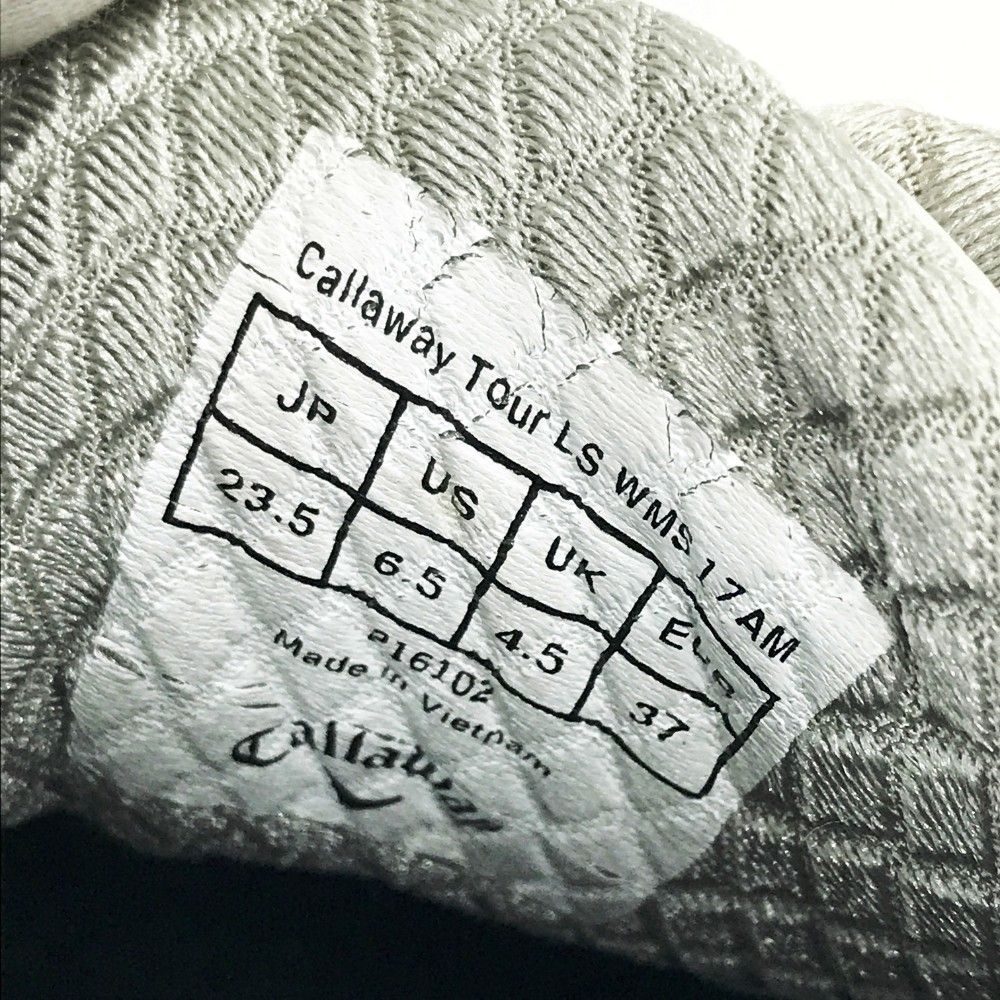 Callaway Tour LS WMS 17 AM
JP US UK EUR
23.5 6.5 4.5 37
P16102
Made in Vietnam
Callaway